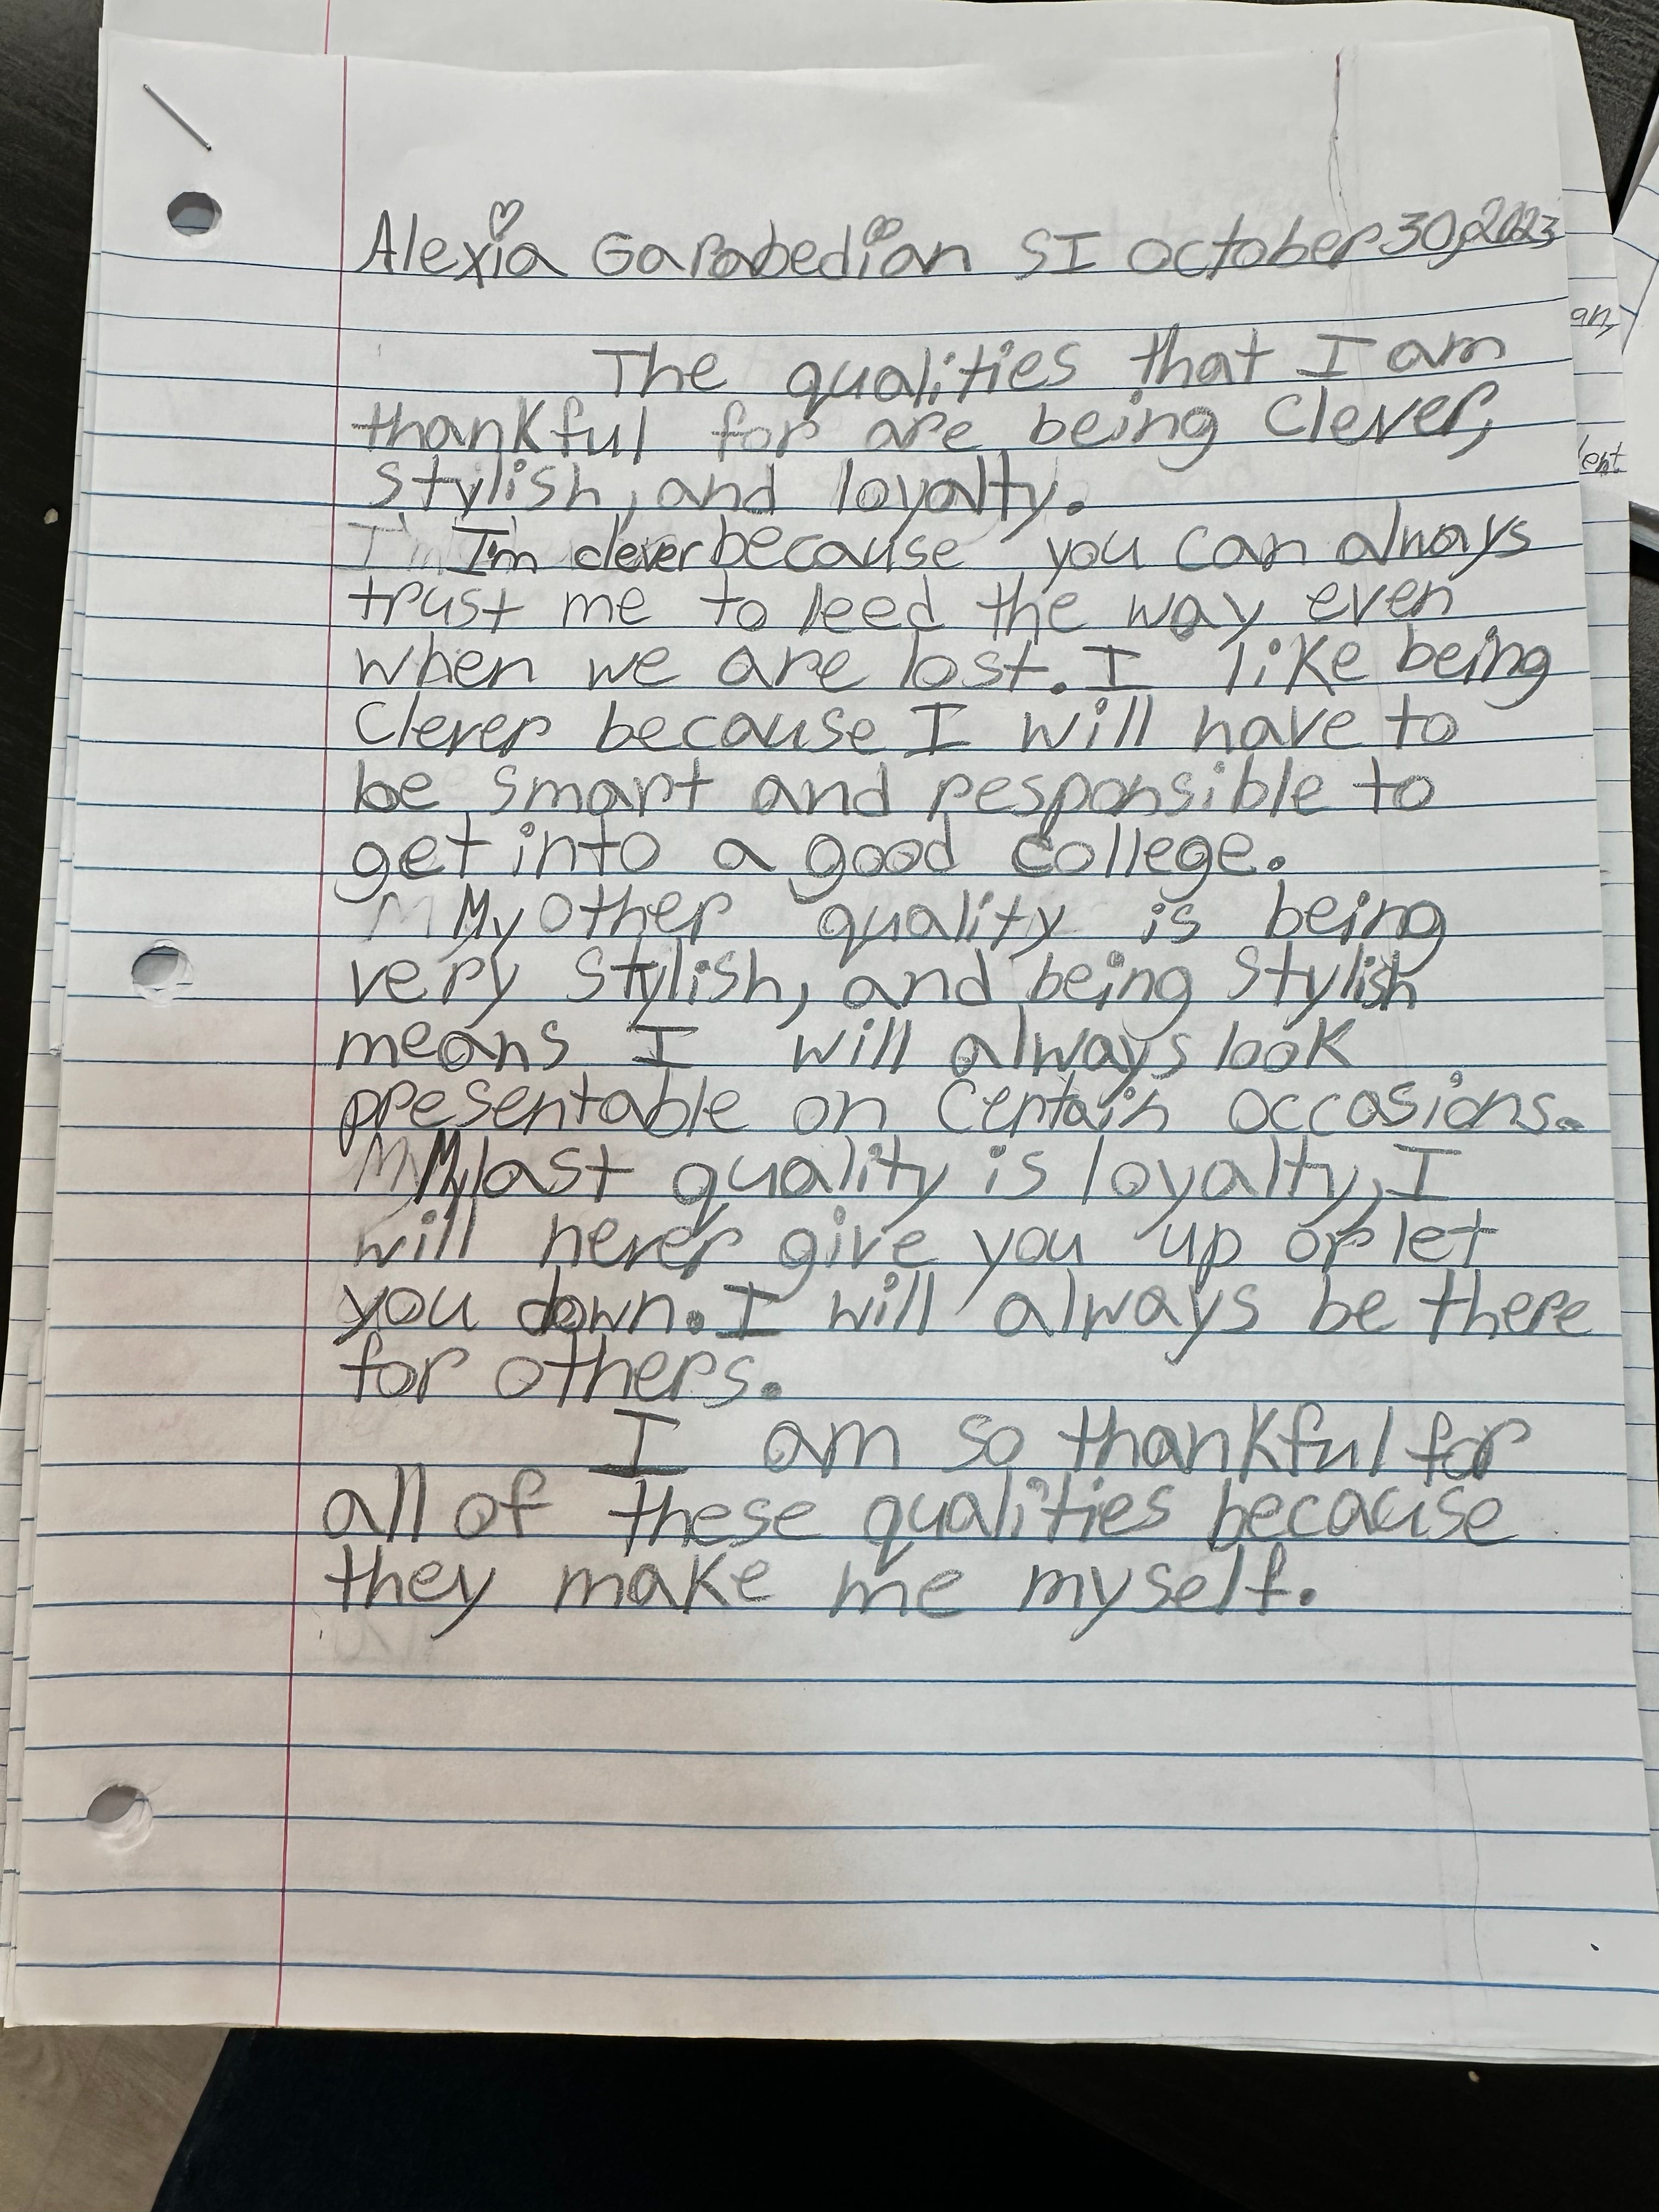 Alexia Garabedian SI October 30, 2023
The qualities that I am
thankful for are being clever,
stylish, and loyalty.
I'm clever because you can always
trust me to leed the way even
when we are lost. I like being
clever because I will have to
be smart and responsible to
get into a good college.
My other quality is being
very stylish, and being stylish
means I will always look
presentable on certain occasions.
My last quality is loyalty, I
will never give you up or let
you down. I will always be there
for others.
I am so thankful for
all of these qualities because
they make me myself.